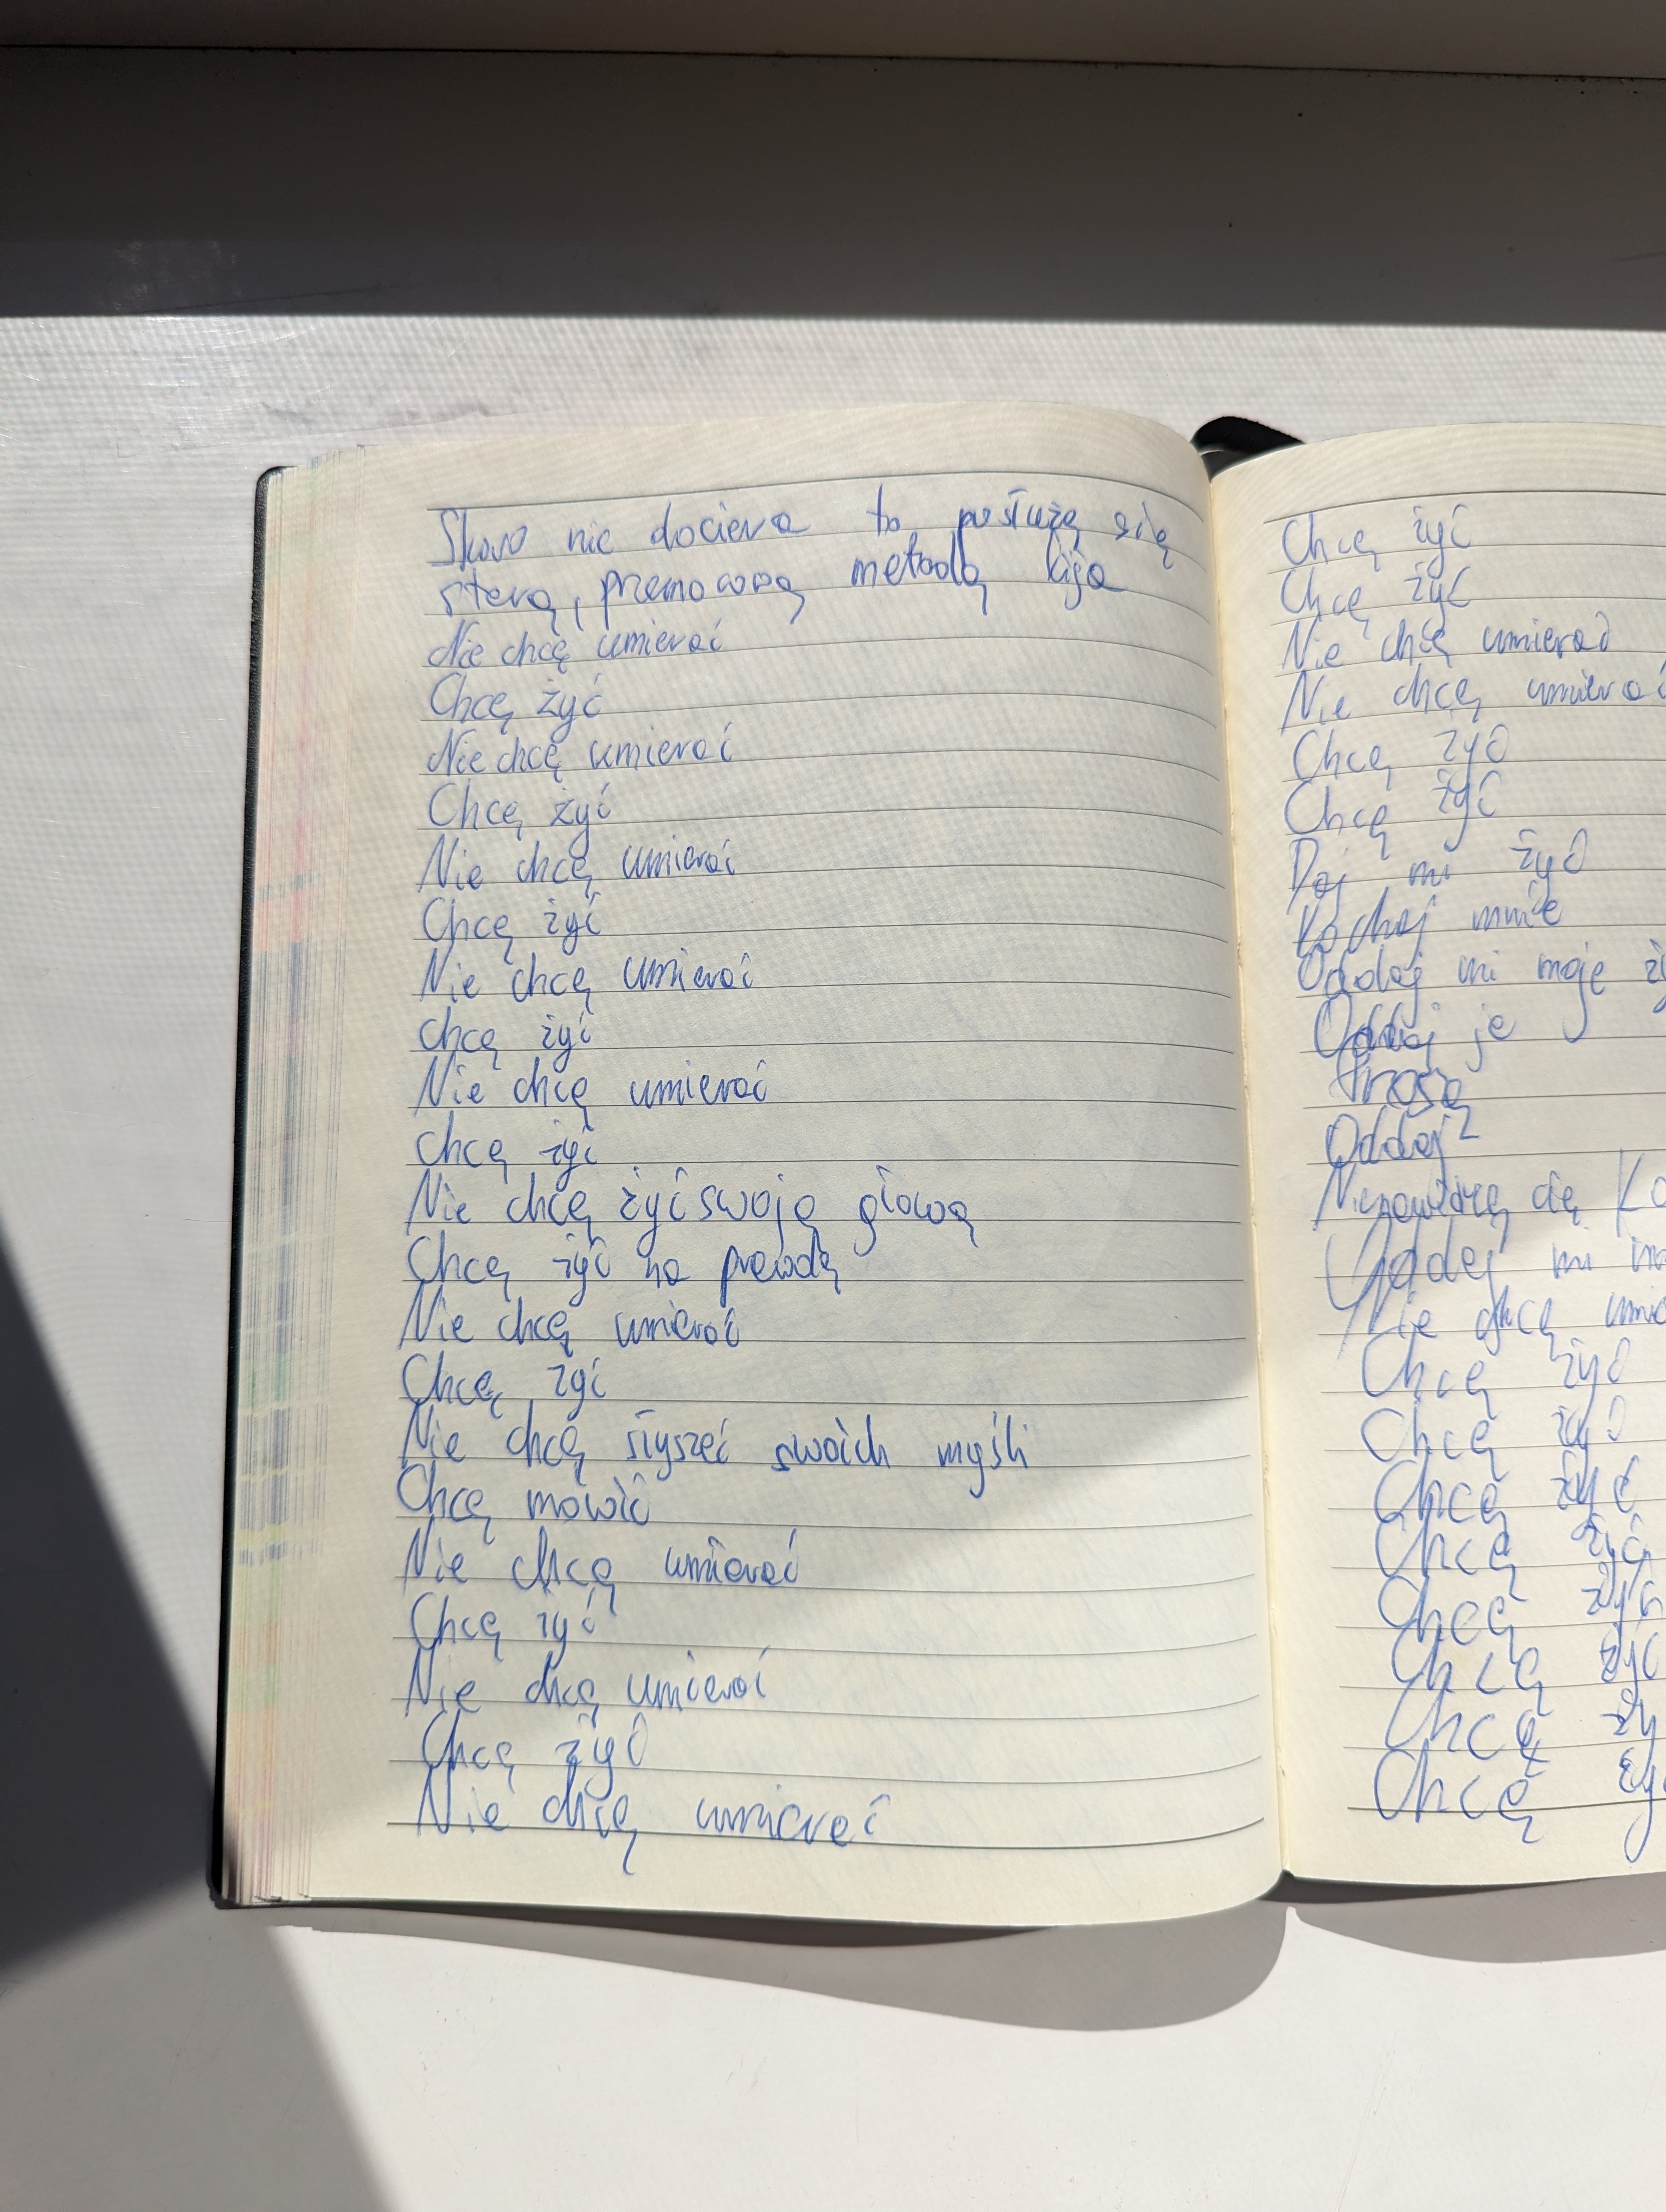 Skoro nie dociera to posłużę się
starą, przemocową metodą kija
Nie chcę umierać
Chcę żyć
Nie chcę umierać
Chcę żyć
Nie chcę umierać
Chcę żyć
Nie chcę umierać
chcę żyć
Nie chcę umierać
chcę żyć
Nie chcę żyć swoją głową
Chcę żyć na prawdę
Nie chcę umierać
Chcę żyć
Nie chcę słyszeć swoich myśli
Chcę mówić
Nie chcę umierać
Chcę żyć
Nie chcę umierać
Chcę żyć
Nie chcę umierać
Chcę żyć
Chcę żyć
Nie chcę umierać
Nie chcę umierać
Chcę żyć
Chcę żyć
Daj mi żyć
Kochaj mnie
Oddaj mi moje
Oddaj je
Proszę
Oddaj
Nienawidzę cię
Oddaj mi
Nie chcę
Chcę żyć
Chcę żyć
Chcę żyć
Chcę żyć
Chcę żyć
Chcę żyć
Chcę
Chcę